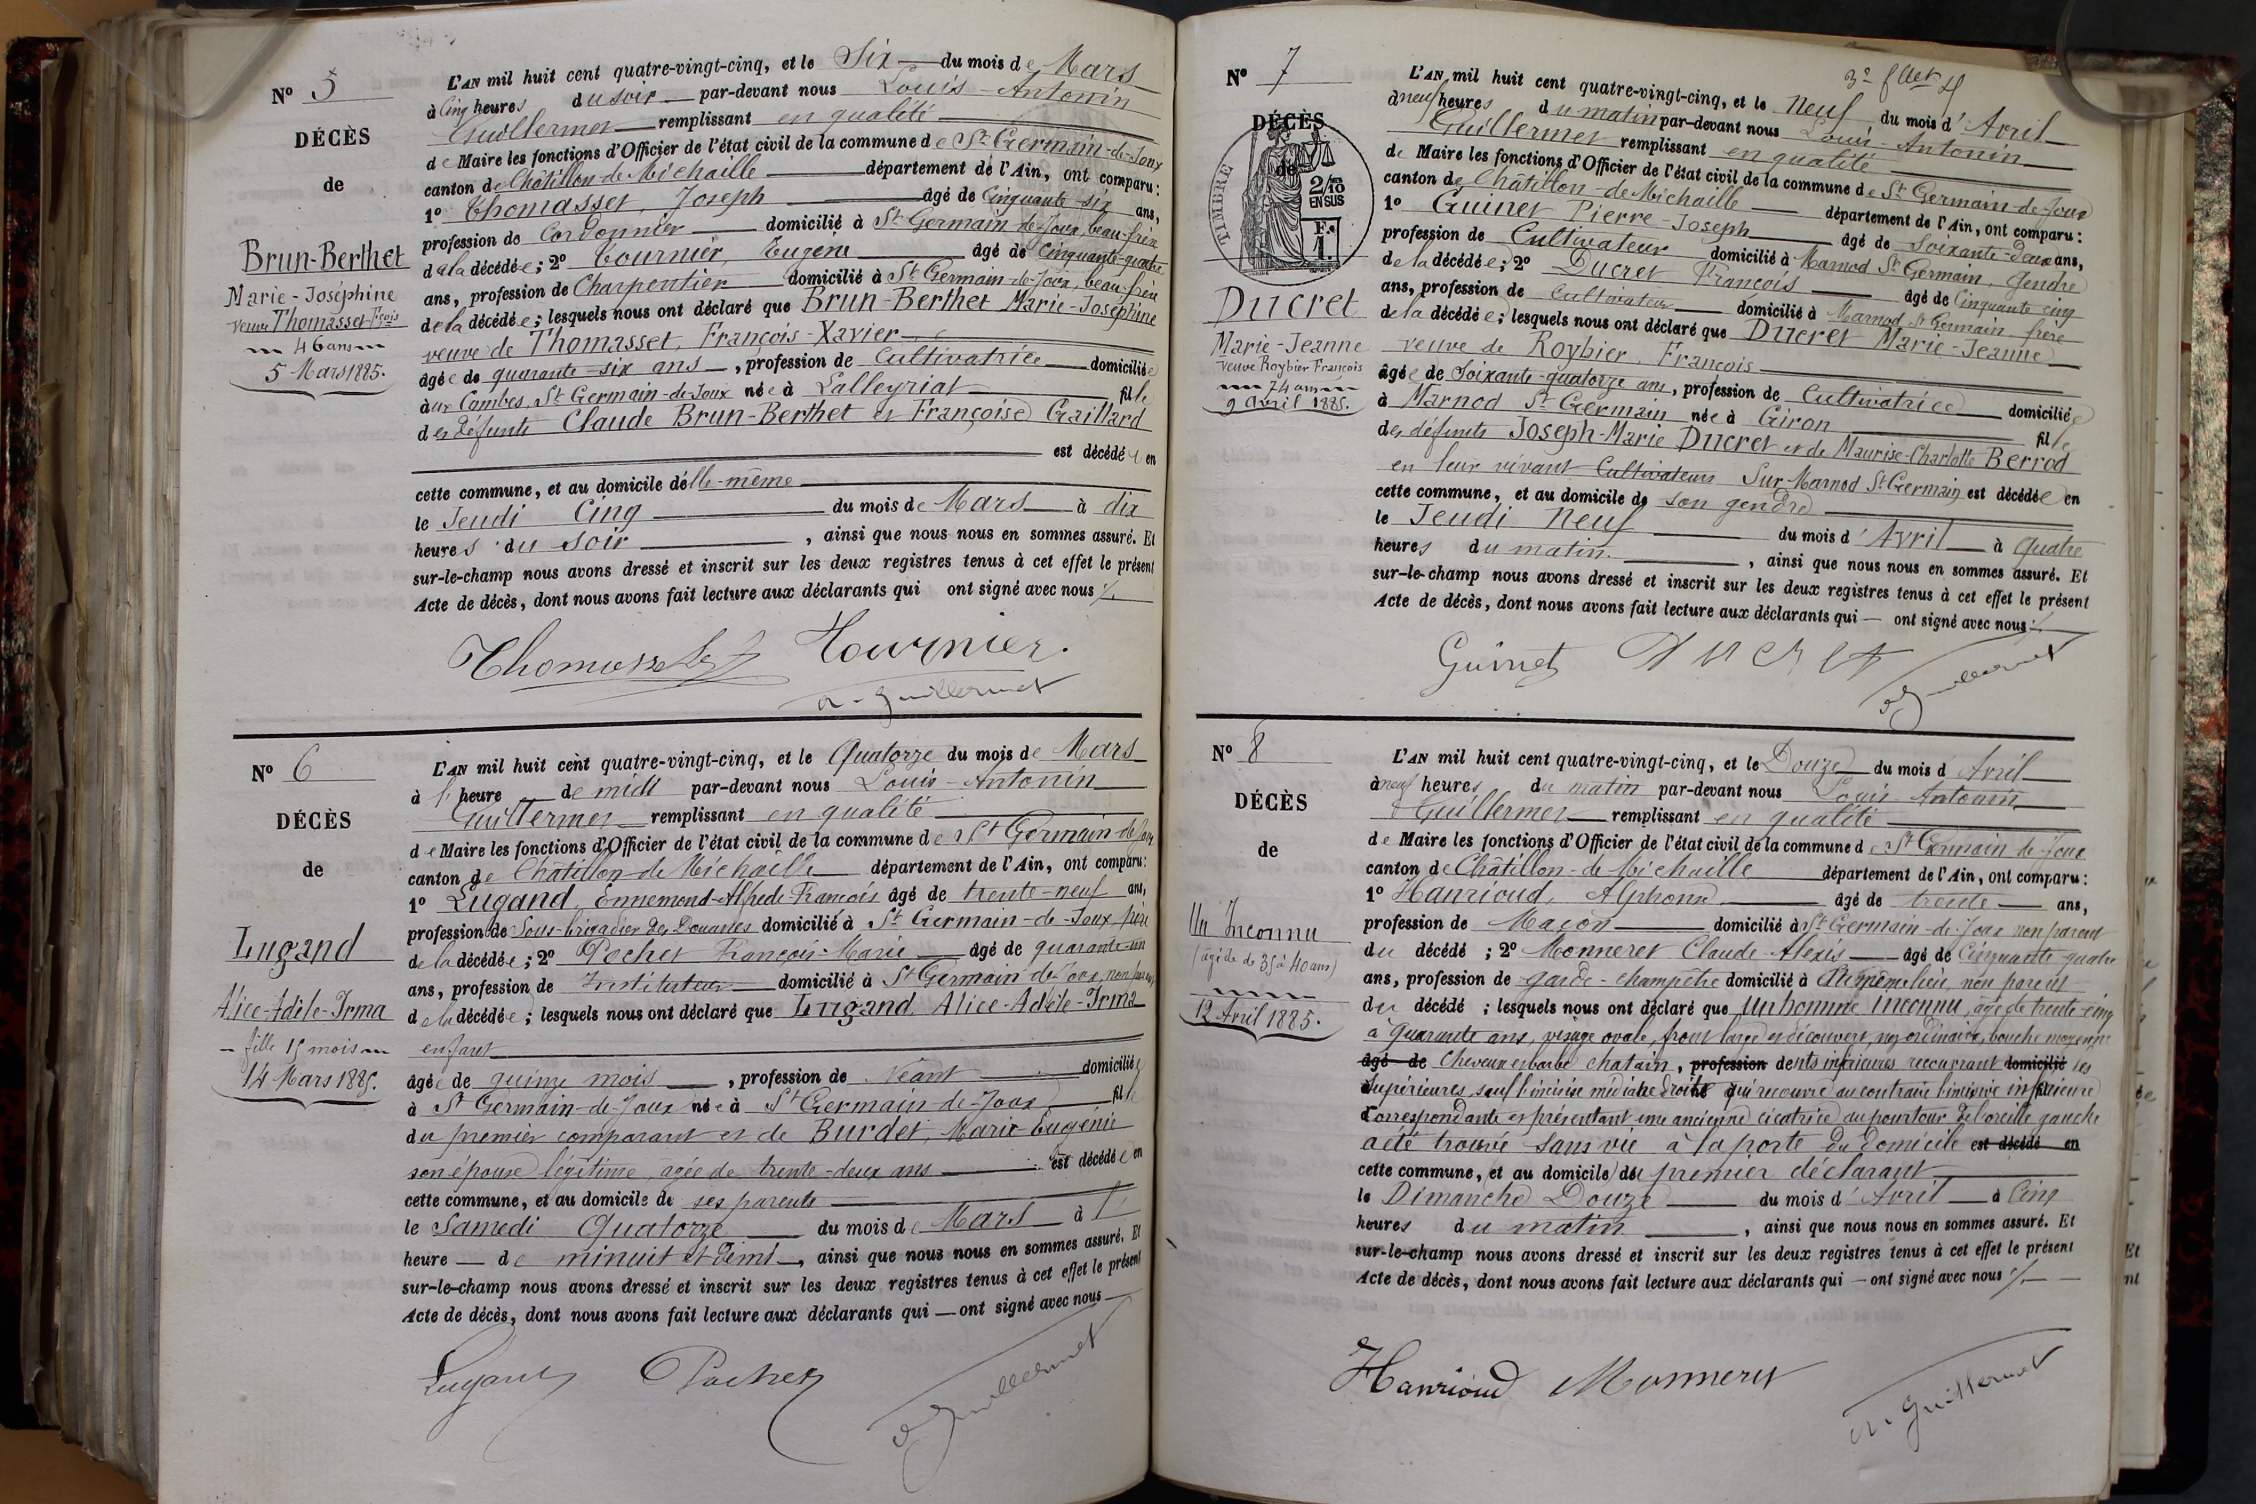 N° 5
DÉCÈS
de
Brun-Berthet
Marie-Joséphine
veuve Thomasset Fçois
46 ans
5 Mars 1885.
L'AN mil huit cent quatre-vingt-cinq, et le Six du mois de Mars
à Cinq heures du soir par-devant nous Louis-Antonin
Guillermet remplissant en qualité
de Maire les fonctions d'Officier de l'état civil de la commune de St Germain-de-Joux
canton de Châtillon-de-Michaille département de l'Ain, ont comparu:
1° Thomasset, Joseph âgé de Cinquante-six ans,
profession de Cordonnier domicilié à St Germain-de-Joux, beau-frère
de la décédée; 2° Tournier, Eugène âgé de Cinquante-quatre
ans, profession de Charpentier domicilié à St Germain-de-Joux, beau-frère
de la décédée; lesquels nous ont déclaré que Brun-Berthet Marie-Joséphine
veuve de Thomasset, François-Xavier
âgée de quarante-six ans, profession de Cultivatrice domiciliée
aux Combes, St Germain-de-Joux née à Lalleyriat fille
des défunts Claude Brun-Berthet et Françoise Gaillard
est décédée en
cette commune, et au domicile d'elle-même
le Jeudi Cinq du mois de Mars à dix
heures du soir, ainsi que nous nous en sommes assuré. Et
sur-le-champ nous avons dressé et inscrit sur les deux registres tenus à cet effet le présent
Acte de décès, dont nous avons fait lecture aux déclarants qui ont signé avec nous
Thomasset J Tournier.
A. Guillermet
N° 6
DÉCÈS
de
Lugand
Alice-Adèle-Irma
fille 15 mois
14 Mars 1885.
L'AN mil huit cent quatre-vingt-cinq, et le Quatorze du mois de Mars
à 1 heure de midi par-devant nous Louis-Antonin
Guillermet remplissant en qualité
de Maire les fonctions d'Officier de l'état civil de la commune de St Germain-de-Joux
canton de Châtillon-de-Michaille département de l'Ain, ont comparu:
1° Lugand, Ennemond-Alfred-François âgé de trente-neuf ans,
profession de Sous-brigadier des Douanes domicilié à St Germain-de-Joux, père
de la décédée; 2° Pochet François-Marie âgé de quarante-un
ans, profession de Instituteur domicilié à St Germain-de-Joux, non parent
de la décédée; lesquels nous ont déclaré que Lugand, Alice-Adèle-Irma
enfant
âgée de quinze mois, profession de Néant domiciliée
à St Germain-de-Joux née à St Germain-de-Joux fille
du premier comparant et de Burdet, Marie Eugénie
son épouse légitime, agée de trente-deux ans est décédée en
cette commune, et au domicile de ses parents
le Samedi Quatorze du mois de Mars à 1
heure de minuit et demi, ainsi que nous nous en sommes assuré. Et
sur-le-champ nous avons dressé et inscrit sur les deux registres tenus à cet effet le présent
Acte de décès, dont nous avons fait lecture aux déclarants qui ont signé avec nous
Lugand Pochet
A Guillermet
3e fllet
N° 7
DÉCÈS
de
TIMBRE
2/10 EN SUS
F.e 1
Ducret
Marie-Jeanne
veuve Roybier François
74 ans
9 avril 1885.
L'AN mil huit cent quatre-vingt-cinq, et le Neuf du mois d'Avril
à neuf heures du matin par-devant nous Louis-Antonin
Guillermet remplissant en qualité
de Maire les fonctions d'Officier de l'état civil de la commune de St Germain-de-Joux
canton de Châtillon-de-Michaille département de l'Ain, ont comparu:
1° Guinet Pierre-Joseph âgé de Soixante-deux ans,
profession de Cultivateur domicilié à Marnod St Germain, Gendre
de la décédée; 2° Ducret François âgé de Cinquante-cinq
ans, profession de Cultivateur domicilié à Marnod St Germain, frère
de la décédée; lesquels nous ont déclaré que Ducret Marie-Jeanne
veuve de Roybier, François
âgée de Soixante-quatorze ans, profession de Cultivatrice domiciliée
à Marnod St Germain née à Giron fille
des défunts Joseph-Marie Ducret et de Maurise-Charlotte Berrod
en leur vivant Cultivateurs Sur Marnod St Germain est décédée en
cette commune, et au domicile de son gendre
le Jeudi Neuf du mois d'Avril à quatre
heures du matin, ainsi que nous nous en sommes assuré. Et
sur-le-champ nous avons dressé et inscrit sur les deux registres tenus à cet effet le présent
Acte de décès, dont nous avons fait lecture aux déclarants qui ont signé avec nous
Guinet Ducret
A Guillermet
N° 8
DÉCÈS
de
Un Inconnu
(âgé de 35 à 40 ans)
12 Avril 1885.
L'AN mil huit cent quatre-vingt-cinq, et le Douze du mois d'Avril
à neuf heures du matin par-devant nous Louis-Antonin
Guillermet remplissant en qualité
de Maire les fonctions d'Officier de l'état civil de la commune de St Germain-de-Joux
canton de Châtillon-de-Michaille département de l'Ain, ont comparu:
1° Hanrioud, Alphonse âgé de trente ans,
profession de Maçon domicilié à St Germain-de-Joux non parent
du décédé; 2° Monneret Claude-Alexis âgé de Cinquante-quatre
ans, profession de garde-champêtre domicilié à même lieu, non parent
du décédé; lesquels nous ont déclaré que Un homme inconnu, âgé de trente-cinq
à quarante ans, visage ovale, front large et découvert, nez ordinaire, bouche moyenne
âgé de Cheveux et barbe chatain, profession dents inférieures recouvrant domicilié les
supérieures, sauf l'incisive médiane droite qui recouvre au contraire l'incisive inférieure
Correspondante et présentant une ancienne cicatrice au pourtour de l'oreille gauche
a été trouvé sans vie à la porte du domicile est décédé en
cette commune, et au domicile du premier déclarant
le Dimanche Douze du mois d'Avril à Cinq
heures du matin, ainsi que nous nous en sommes assuré. Et
sur-le-champ nous avons dressé et inscrit sur les deux registres tenus à cet effet le présent
Acte de décès, dont nous avons fait lecture aux déclarants qui ont signé avec nous
Hanrioud Monneret
A. Guillermet